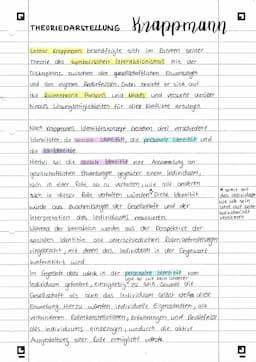 THEORIEDARSTELLUNG Krappmann
Lothar Krappmann beschäftigte sich im Rahmen seiner
Theorie des symbolischen Interaktionismus mit der
Diskrepanz zwischen den gesellschaftlichen Erwartungen
und den eigenen Bedürfnissen. Dabei bezieht er sich auf
die Rollentheorie Parsons und Meads und versucht darüber
hinaus Lösungsmöglichkeiten für diese Konflikte
Nach Krappmanns Identitätskonzept bestehen drei verschiedene
Identitäten: die soziale Identität, die personale Identität und
die Ich-Identität.
Hierbei ist die soziale Identität eine Ansammlung an
gesellschaftlichen Erwartungen gegenüber einem Individuum,
sich in einer Rolle so zu verhalten, wie alle anderen
sich in dieser Rolle verhalten würden. Diese Identität
würde aus Zuschreibungen der Gesellschaft und der
Interpretation des Individuums resultieren.
Während der Interaktion werden aus der Perspektive der
sozialen Identität die unterschiedlichen Rollenanforderungen
eingebracht, mit denen das Individuum in der Gegenwart
konfrontiert wird.
Im Gegensatz dazu werde in der personalen Identität vom
Individuum gefordert, einzigartig zu sein. Sowohl die
Gesellschaft als auch das Individuum selbst stelle diese
Erwartung. Hierzu werden individuelle Eigenschaften, die
vorhandenen Rollenkonstellationen, Erfahrungen und Bedürfnisse
des Individuums einbezogen, wodurch die aktive
Ausgestaltung einer Rolle ermöglicht werde.